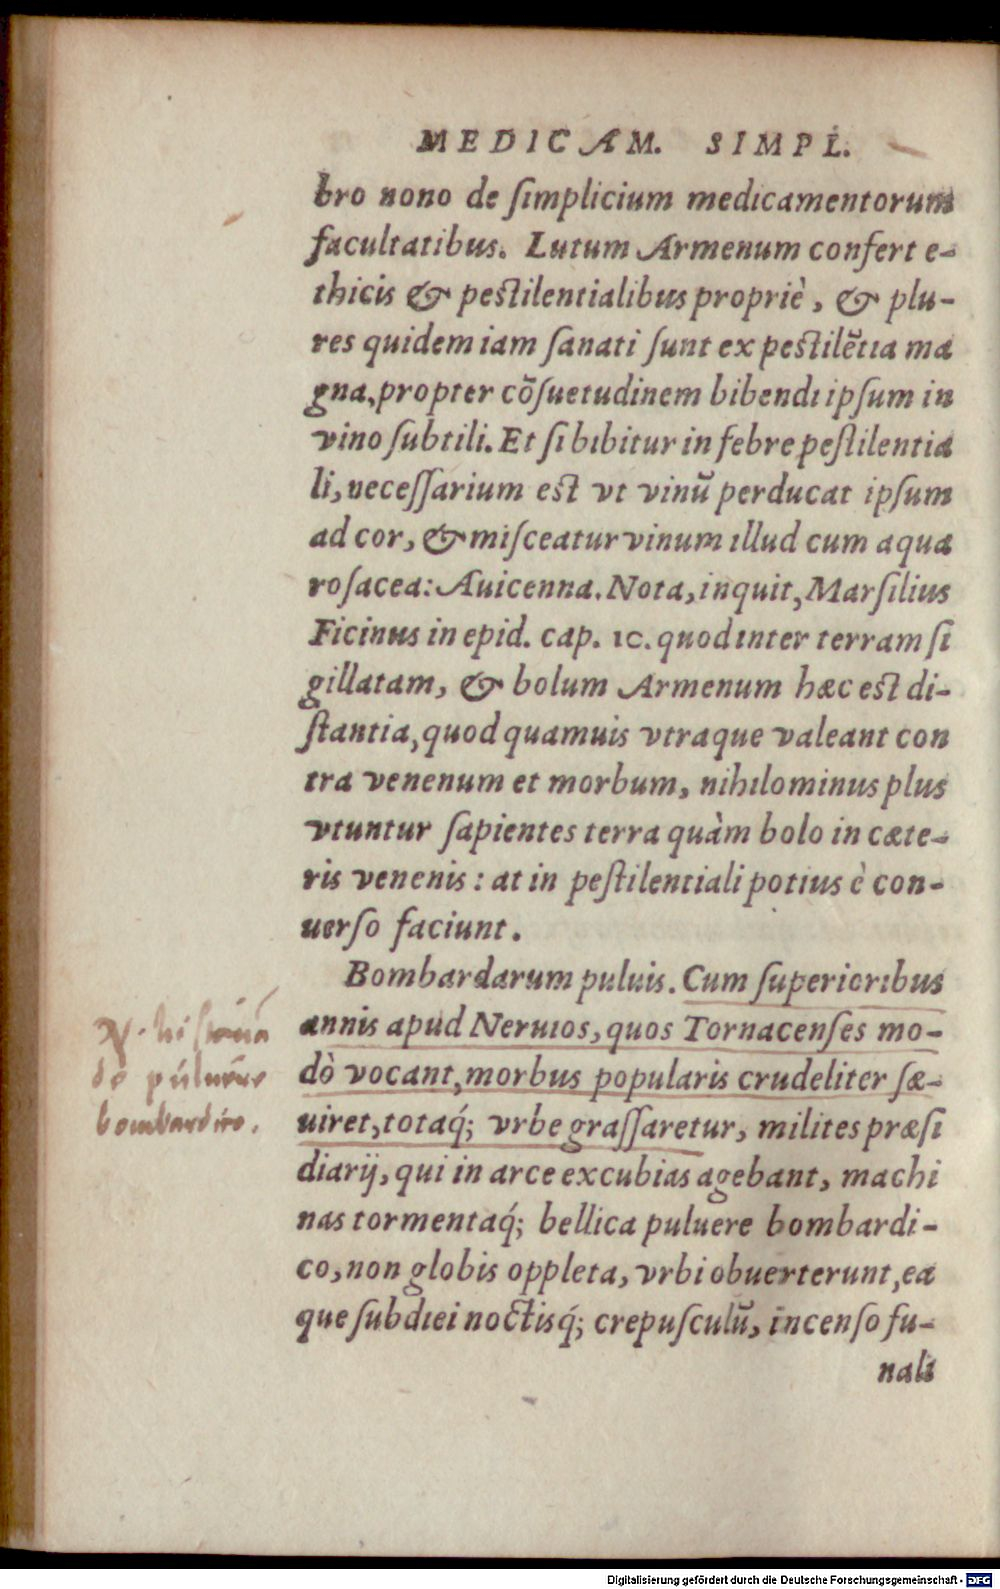 MEDICAM. SIMPL.
bro nono de ſimplicium medicamentorum
facultatibus. Lutum Armenum confert e-
thicis & peſtilentialibus propriè, & plu-
res quidem iam ſanati ſunt ex peſtilẽtia ma
gna, propter cõſuetudinem bibendi ipſum in
vino ſubtili. Et ſi bibitur in febre peſtilentia
li, neceſſarium eſt vt vinũ perducat ipſum
ad cor, & miſceatur vinum illud cum aqua
roſacea: Auicenna. Nota, inquit, Marſilius
Ficinus in epid. cap. 10. quod inter terram ſi
gillatam, & bolum Armenum hæc eſt di-
ſtantia, quod quamuis vtraque valeant con
tra venenum et morbum, nihilominus plus
vtuntur ſapientes terra quàm bolo in cæte-
ris venenis: at in peſtilentiali potius è con-
uerſo faciunt.
Bombardarum puluis. Cum ſuperioribus
annis apud Neruios, quos Tornacenſes mo-
dò vocant, morbus popularis crudeliter ſæ-
uiret, totaq́; vrbe graſſaretur, milites præſi
diarij, qui in arce excubias agebant, machi
nas tormentaq́; bellica puluere bombardi-
co, non globis oppleta, vrbi obuerterunt, ea
que ſub diei noctisq́; crepuſculũ, incenſo fu-
nali
N. historiā
de puluere
bombardico.
Digitalisierung gefördert durch die Deutsche Forschungsgemeinschaft - DFG